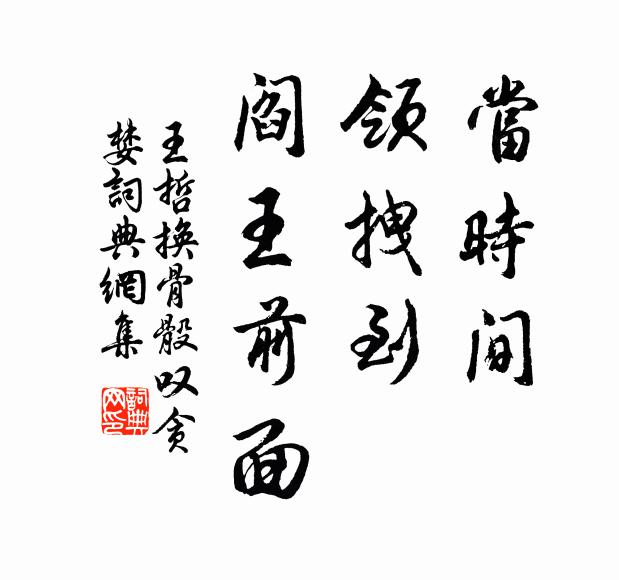 當時間
領拽到
閻王前面
王哲換骨骰叹贪
婪詞典網集
詞典网印